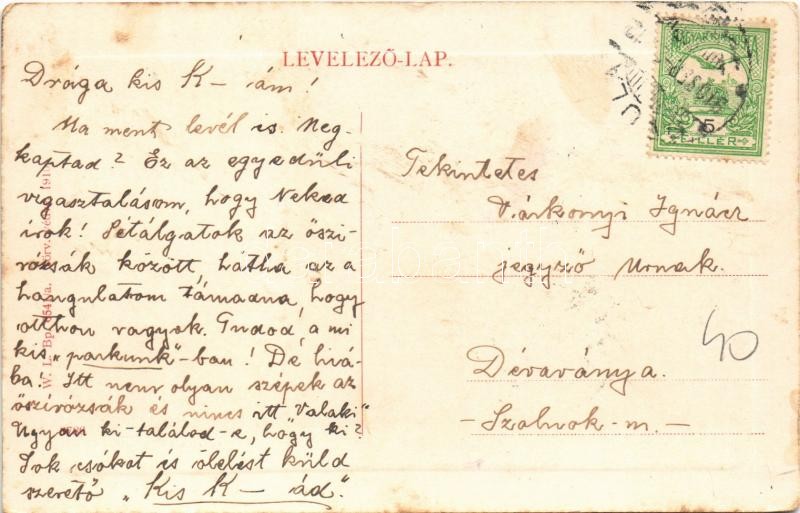 LEVELEZŐ-LAP.
Drága kis K- ám!
Ma ment levél is. Meg-
kaptad? Ez az egyedüli
vigasztalásom, hogy Neked
írok! Sétálgatok az őszi-
rózsák között, hátha az a
hangulatom támadna, hogy
otthon vagyok. Tudod, a mi
kis "parkunk"-ban! De hiá-
ba! Itt nem olyan szépek az
őszirózsák és nincs itt "Valaki"
Ugyan ki-találod-e, hogy ki?
Sok csókot és ölelést küld
szerető "Kis K- ád".
Tekintetes
Várkonyi Ignácz
jegyző Urnak.
Dévaványa.
-Szolnok-m.-
40
MAGYAR KIR. POSTA
5
FILLÉR
W. L. Bp.